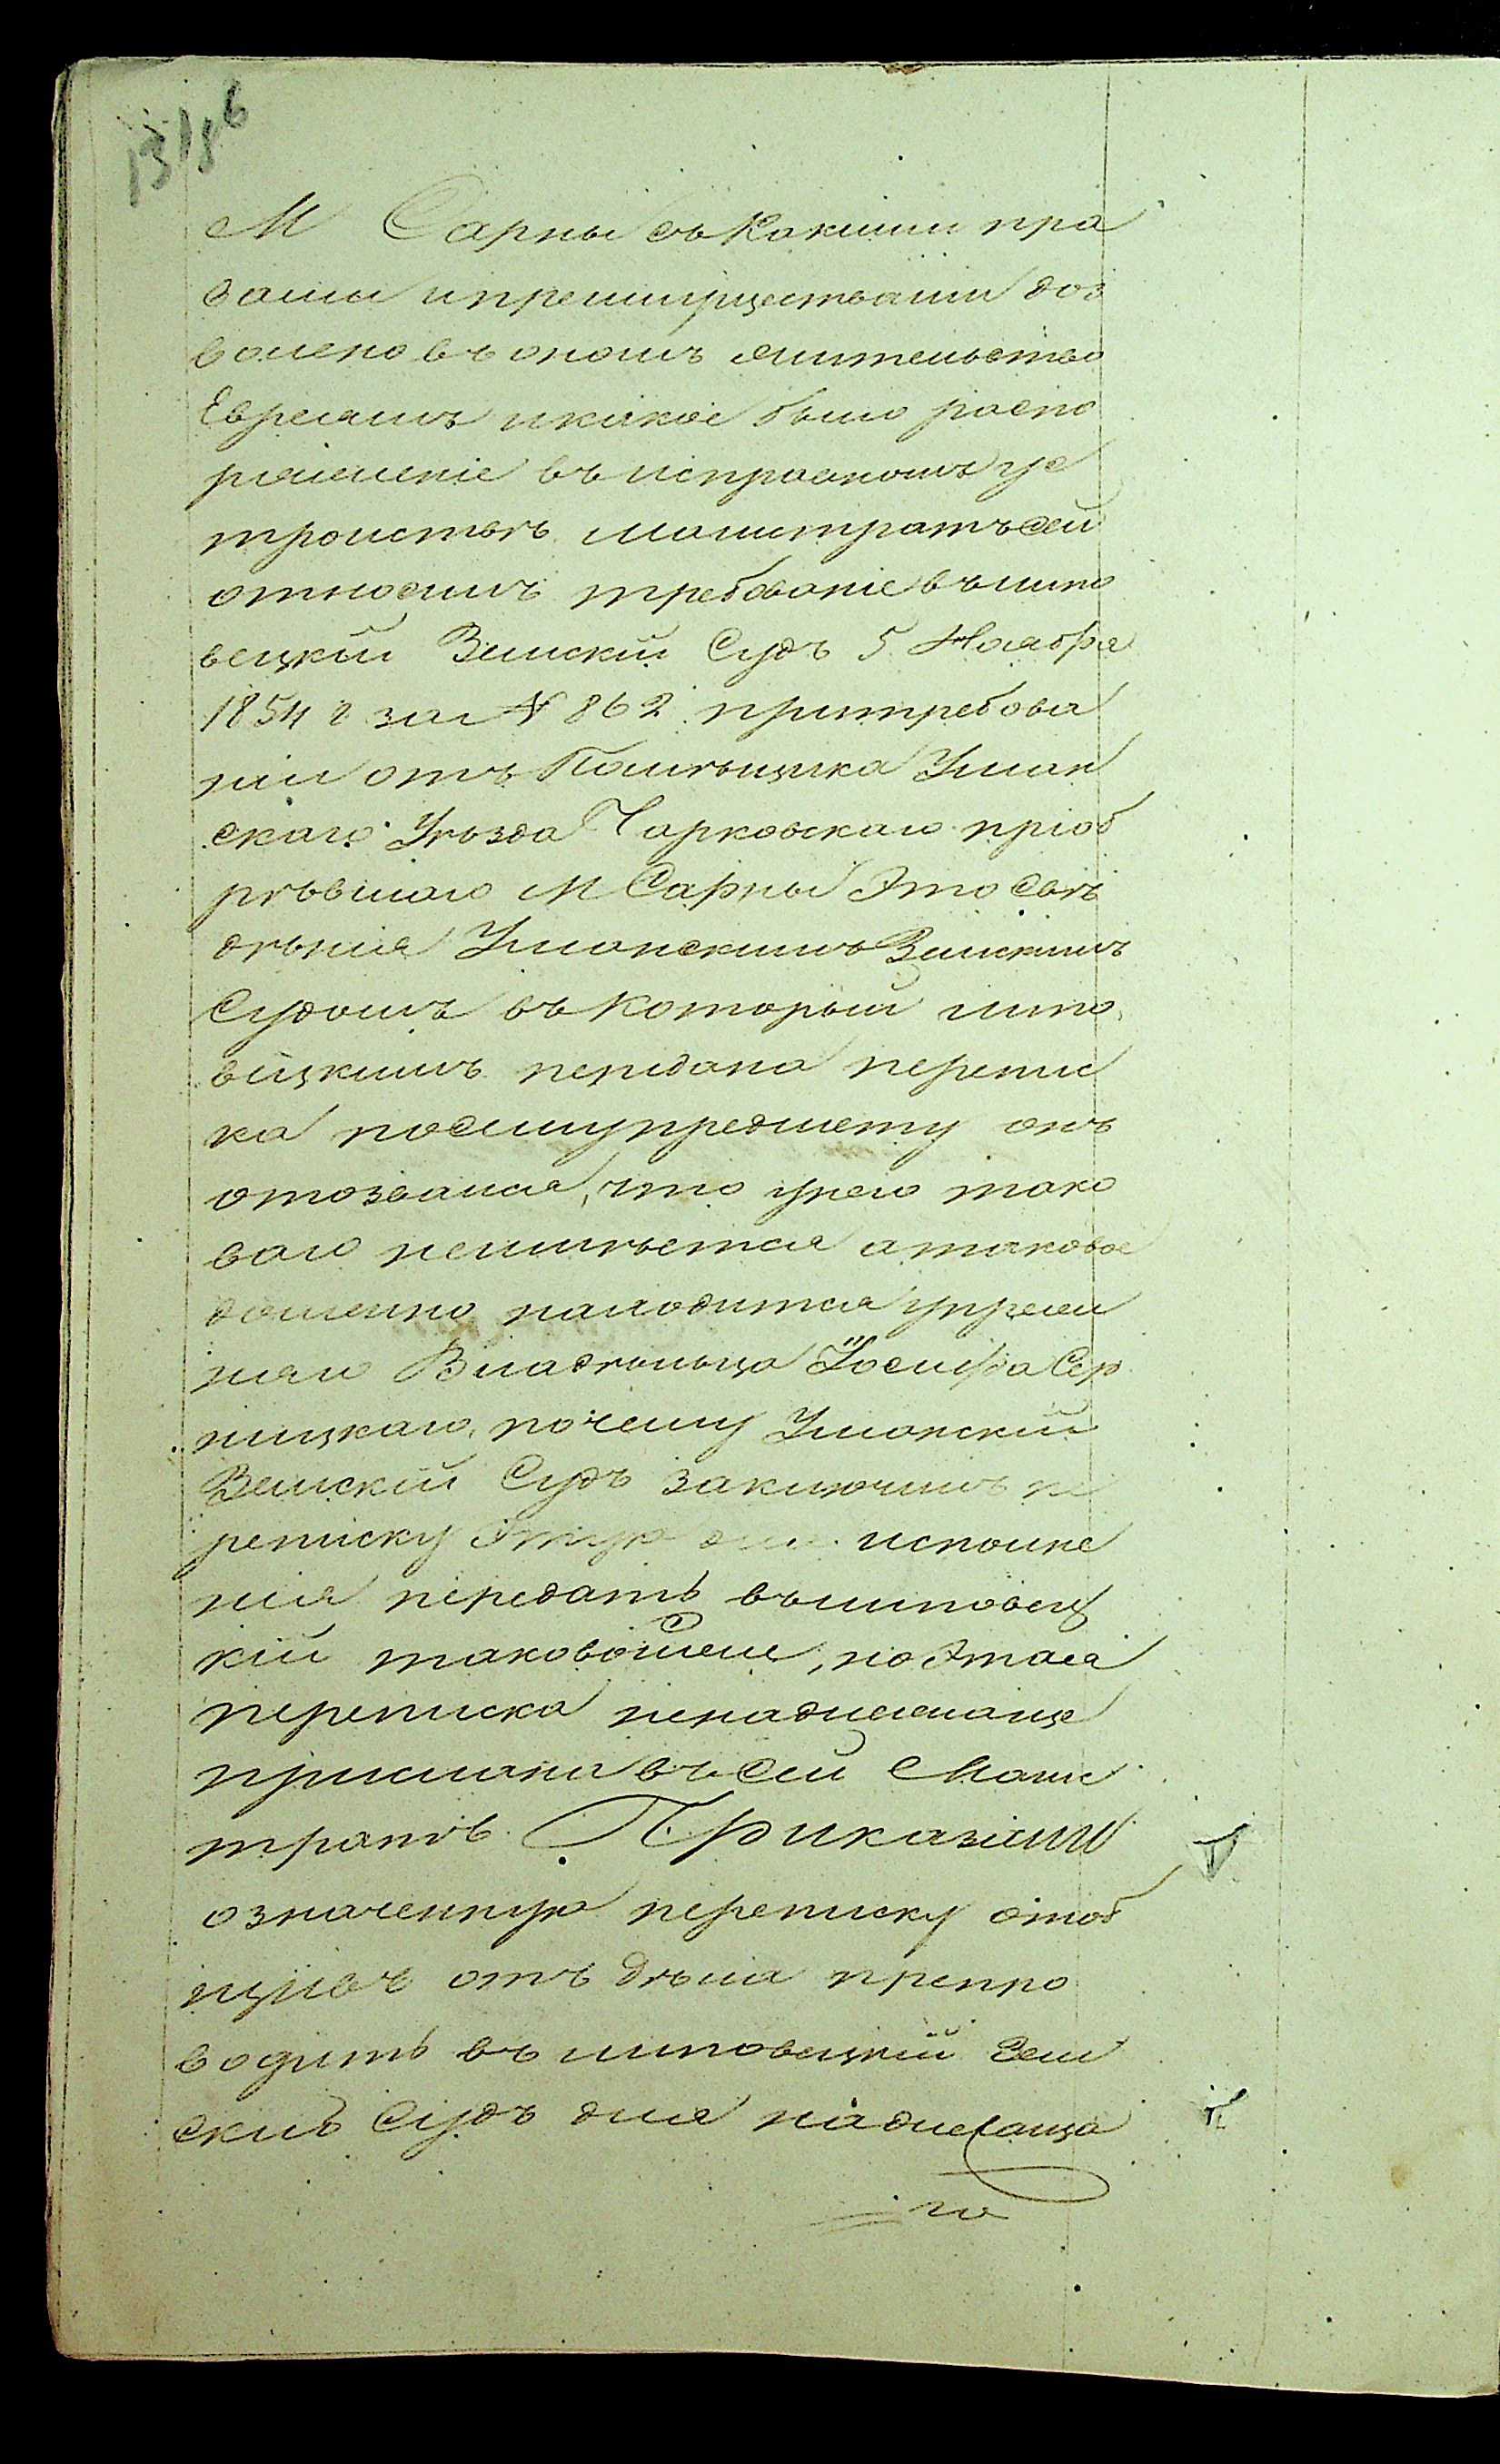 М Сарны съ Какими пра
вами и преимуществами доз
волено въ ономъ жительство
Евреямъ и какое было распо
ряжение въ исправномъ ус
тройствѣ магистратъ сей
относилъ требованіе въ липо
вецкій Земскій Судъ 5 Ноября
1854 г за № 862 при требова
ніи отъ Помѣщика Уман
скаго Уѣзда Чарковскаго пріоб
рѣвшаго М Сарны Это Свѣ
дѣнія Уманскимъ Земскимъ
Судомъ въ Который липо
вецкимъ передана перепис
ка по сему предмету онъ
отозвался, что у него тако
ваго неимѣется а таковое
должно находится у преж
няго Владѣльца Іосифа Сер
ницкаго, почему Уманскій
Земскій Судъ заключилъ пе
реписку Этую для исполне
нія передать въ липовец
кій таковой же, но Этая
переписка ненадлежаще
прислана въ Сей Магис
тратъ. Приказали
означенную переписку отоб
щивъ отъ дѣла препро
водить въ липовецкій Зем
скій Судъ для надлежаща
го